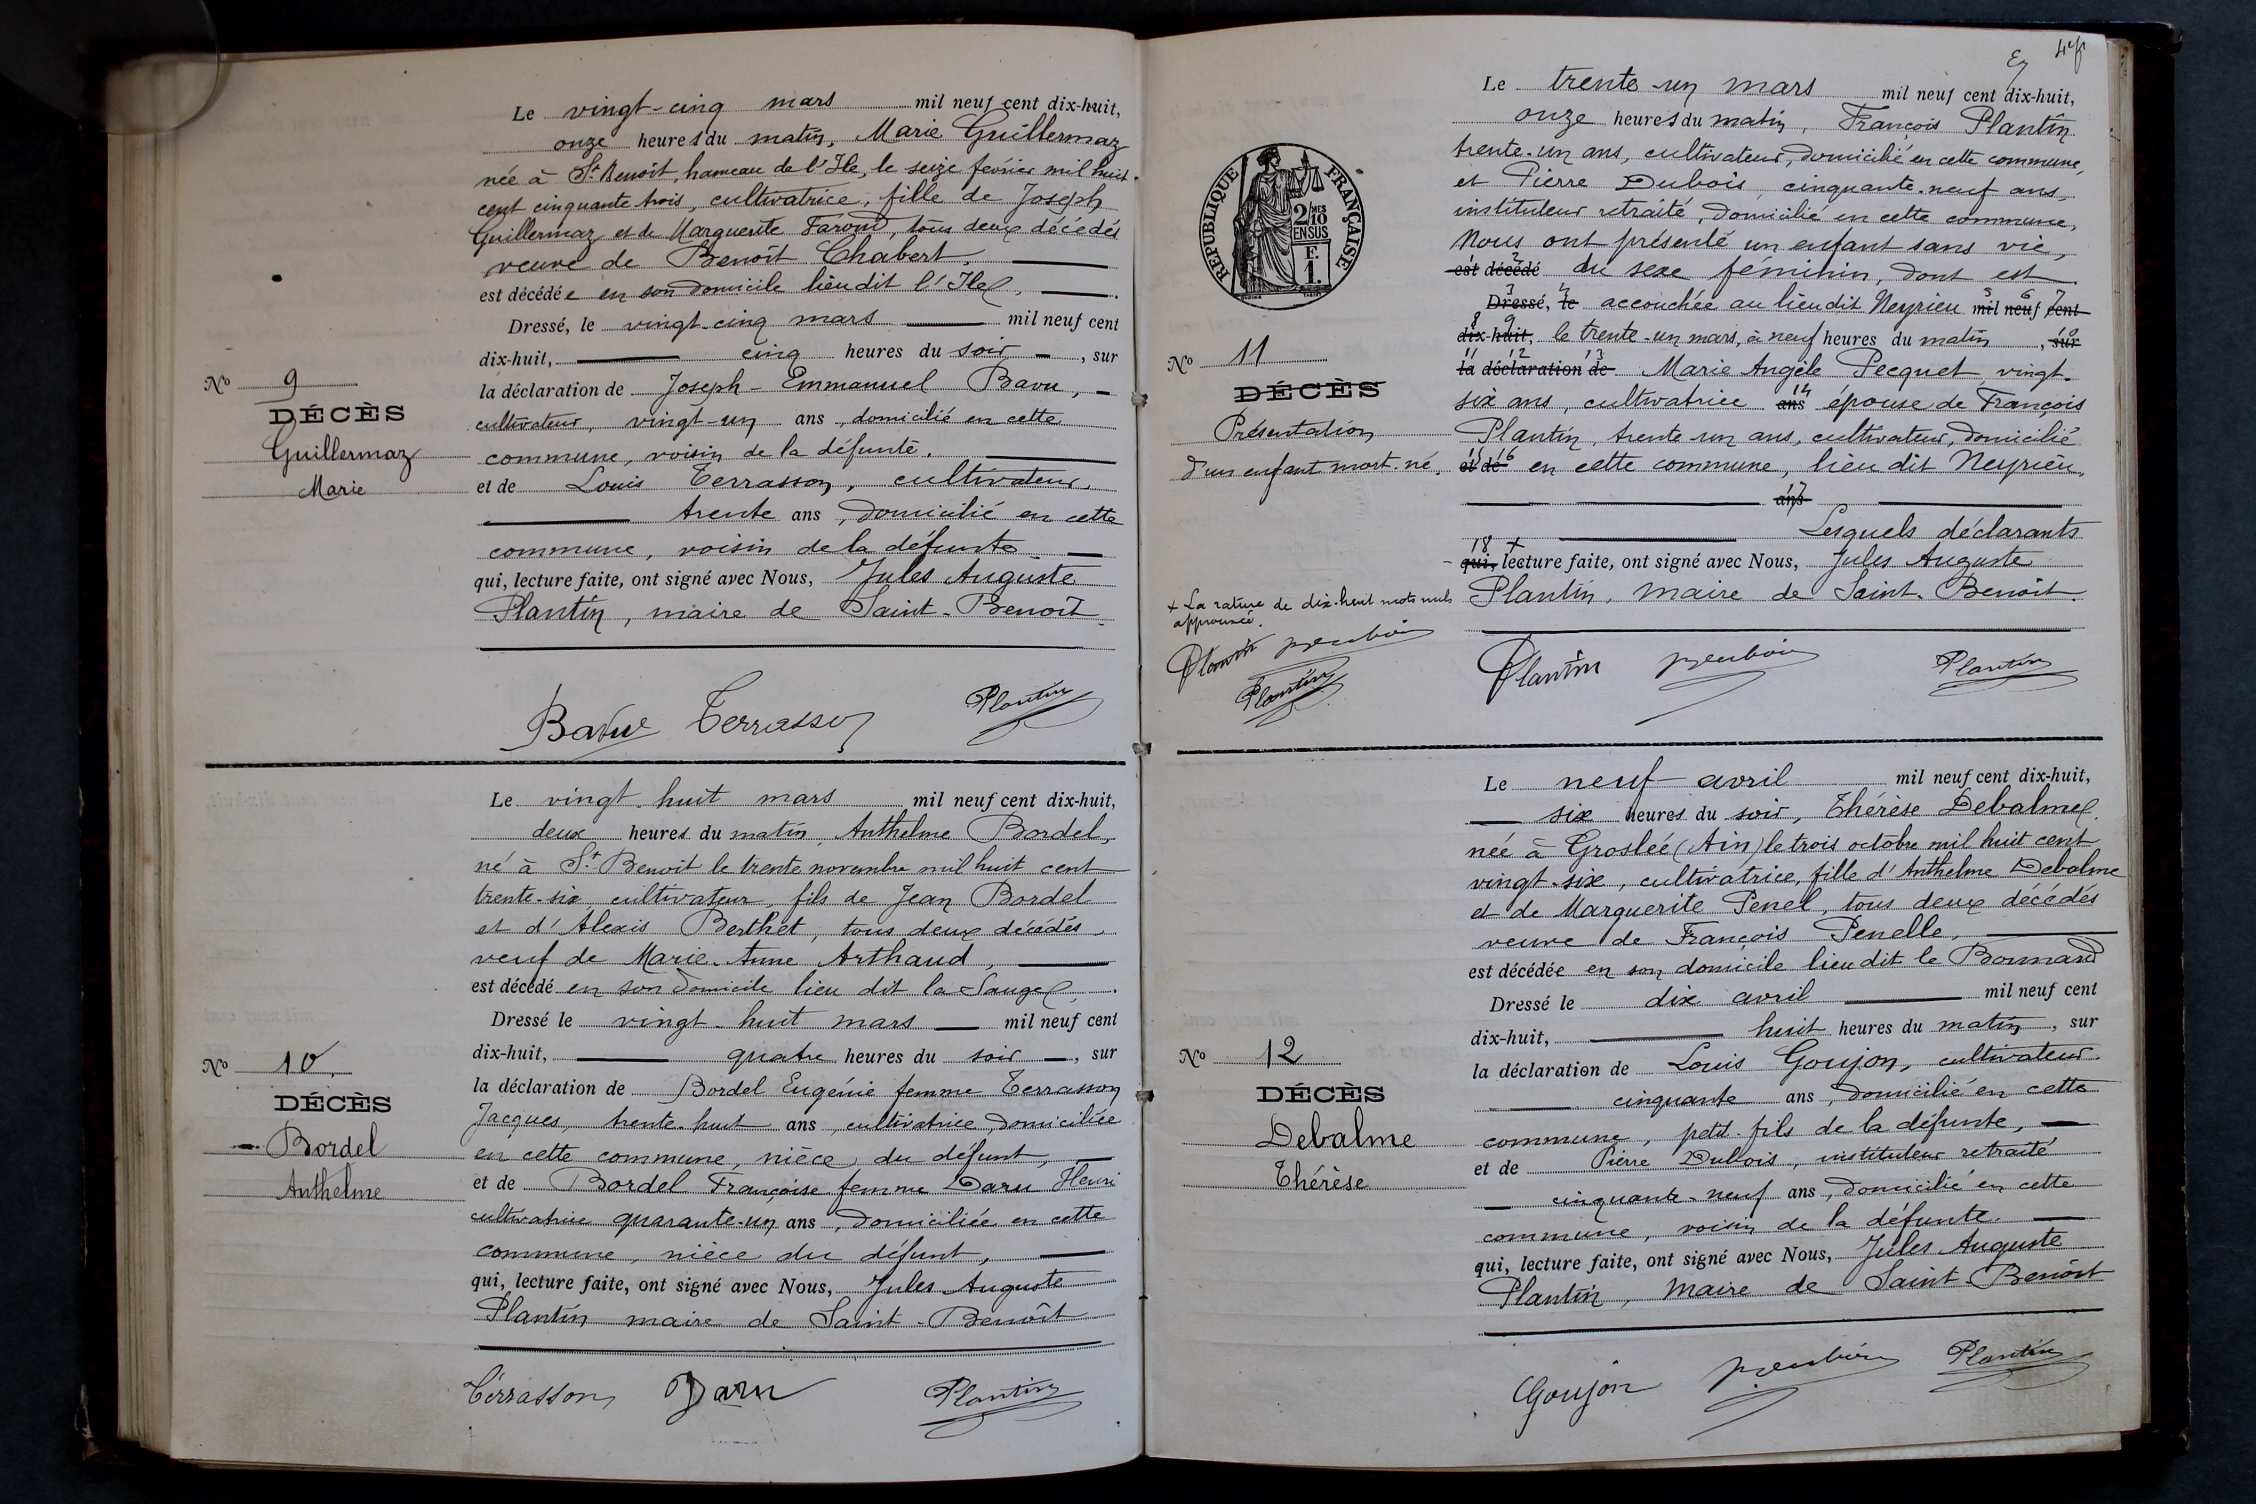 Le vingt-cinq mars mil neuf cent dix-huit,
onze heures du matin, Marie Guillermaz
née à St Benoit, hameau de l'Ile, le seize février mil huit
cent cinquante trois, cultivatrice, fille de Joseph
Guillermaz et de Marguerite Farond, tous deux décédés
veuve de Benoît Chabert.
est décédée en son domicile lieu dit l'Ile,
Dressé, le vingt-cinq mars mil neuf cent
dix-huit, cinq heures du soir, sur
No 9
DÉCÈS
Guillermaz
Marie
la déclaration de Joseph-Emmanuel Bavu,
cultivateur, vingt-un ans, domicilié en cette
commune, voisin de la défunte.
et de Louis Terrasson, cultivateur,
trente ans, domicilié en cette
commune, voisin de la défunte
qui, lecture faite, ont signé avec Nous, Jules Auguste
Plantin, maire de Saint-Benoît.
Bavu Terrasson Plantin
Le vingt-huit mars mil neuf cent dix-huit,
deux heures du matin, Anthelme Bordel,
né à St Benoit le trente novembre mil huit cent
trente-six, cultivateur, fils de Jean Bordel
et d'Alexis Berthet, tous deux décédés,
veuf de Marie-Anne Arthaud,
est décédé en son domicile lieu dit la Sauge,
Dressé le vingt-huit mars mil neuf cent
dix-huit, quatre heures du soir, sur
No 10.
DÉCÈS
Bordel
Anthelme
la déclaration de Bordel Eugénie femme Terrasson
Jacques, trente-huit ans, cultivatrice, domiciliée
en cette commune, nièce du défunt,
et de Bordel Françoise femme Daru Henri
cultivatrice quarante-un ans, domiciliée en cette
commune, nièce du défunt,
qui, lecture faite, ont signé avec Nous, Jules Auguste
Plantin maire de Saint-Benoît
Terrasson Daru Plantin
RÉPUBLIQUE FRANÇAISE
2/10 MES
EN SUS
F.
1.
Le trente-un mars mil neuf cent dix-huit,
onze heures du matin, François Plantin
trente-un ans, cultivateur, domicilié en cette commune,
et Pierre Dubois, cinquante-neuf ans,
instituteur retraité, domicilié en cette commune,
Nous ont présenté un enfant sans vie,
est décédé du sexe féminin, dont est
Dressé, le accouchée au lieu dit Neyrieu mil neuf cent
dix-huit, le trente-un mars, à neuf heures du matin, sur
la déclaration de Marie Angèle Pecquet, vingt-
six ans, cultivatrice ans épouse de François
Plantin, trente-un ans, cultivateur, domicilié
et de en cette commune, lieu dit Neyrieu.
ans
Lesquels déclarants
qui, lecture faite, ont signé avec Nous, Jules Auguste
Plantin, maire de Saint-Benoît.
No 11
DÉCÈS
Présentation
d'un enfant mort-né.
+ La rature de dix-huit mots nuls
approuvée.
Plantin Dubois
Plantin
Plantin Dubois Plantin
Le neuf avril mil neuf cent dix-huit,
six heures du soir, Thérèse Debalme
née à Groslée (Ain) le trois octobre mil huit cent
vingt-six, cultivatrice, fille d'Anthelme Debalme
et de Marguerite Penel, tous deux décédés
veuve de François Penelle,
est décédée en son domicile lieu dit le Bonnard
Dressé le dix avril mil neuf cent
dix-huit, huit heures du matin, sur
No 12
DÉCÈS
Debalme
Thérèse
la déclaration de Louis Goujon, cultivateur
cinquante ans, domicilié en cette
commune, petit-fils de la défunte,
et de Pierre Dubois, instituteur retraité
cinquante-neuf ans, domicilié en cette
commune, voisin de la défunte.
qui, lecture faite, ont signé avec Nous, Jules Auguste
Plantin, maire de Saint Benoît
Goujon Dubois Plantin